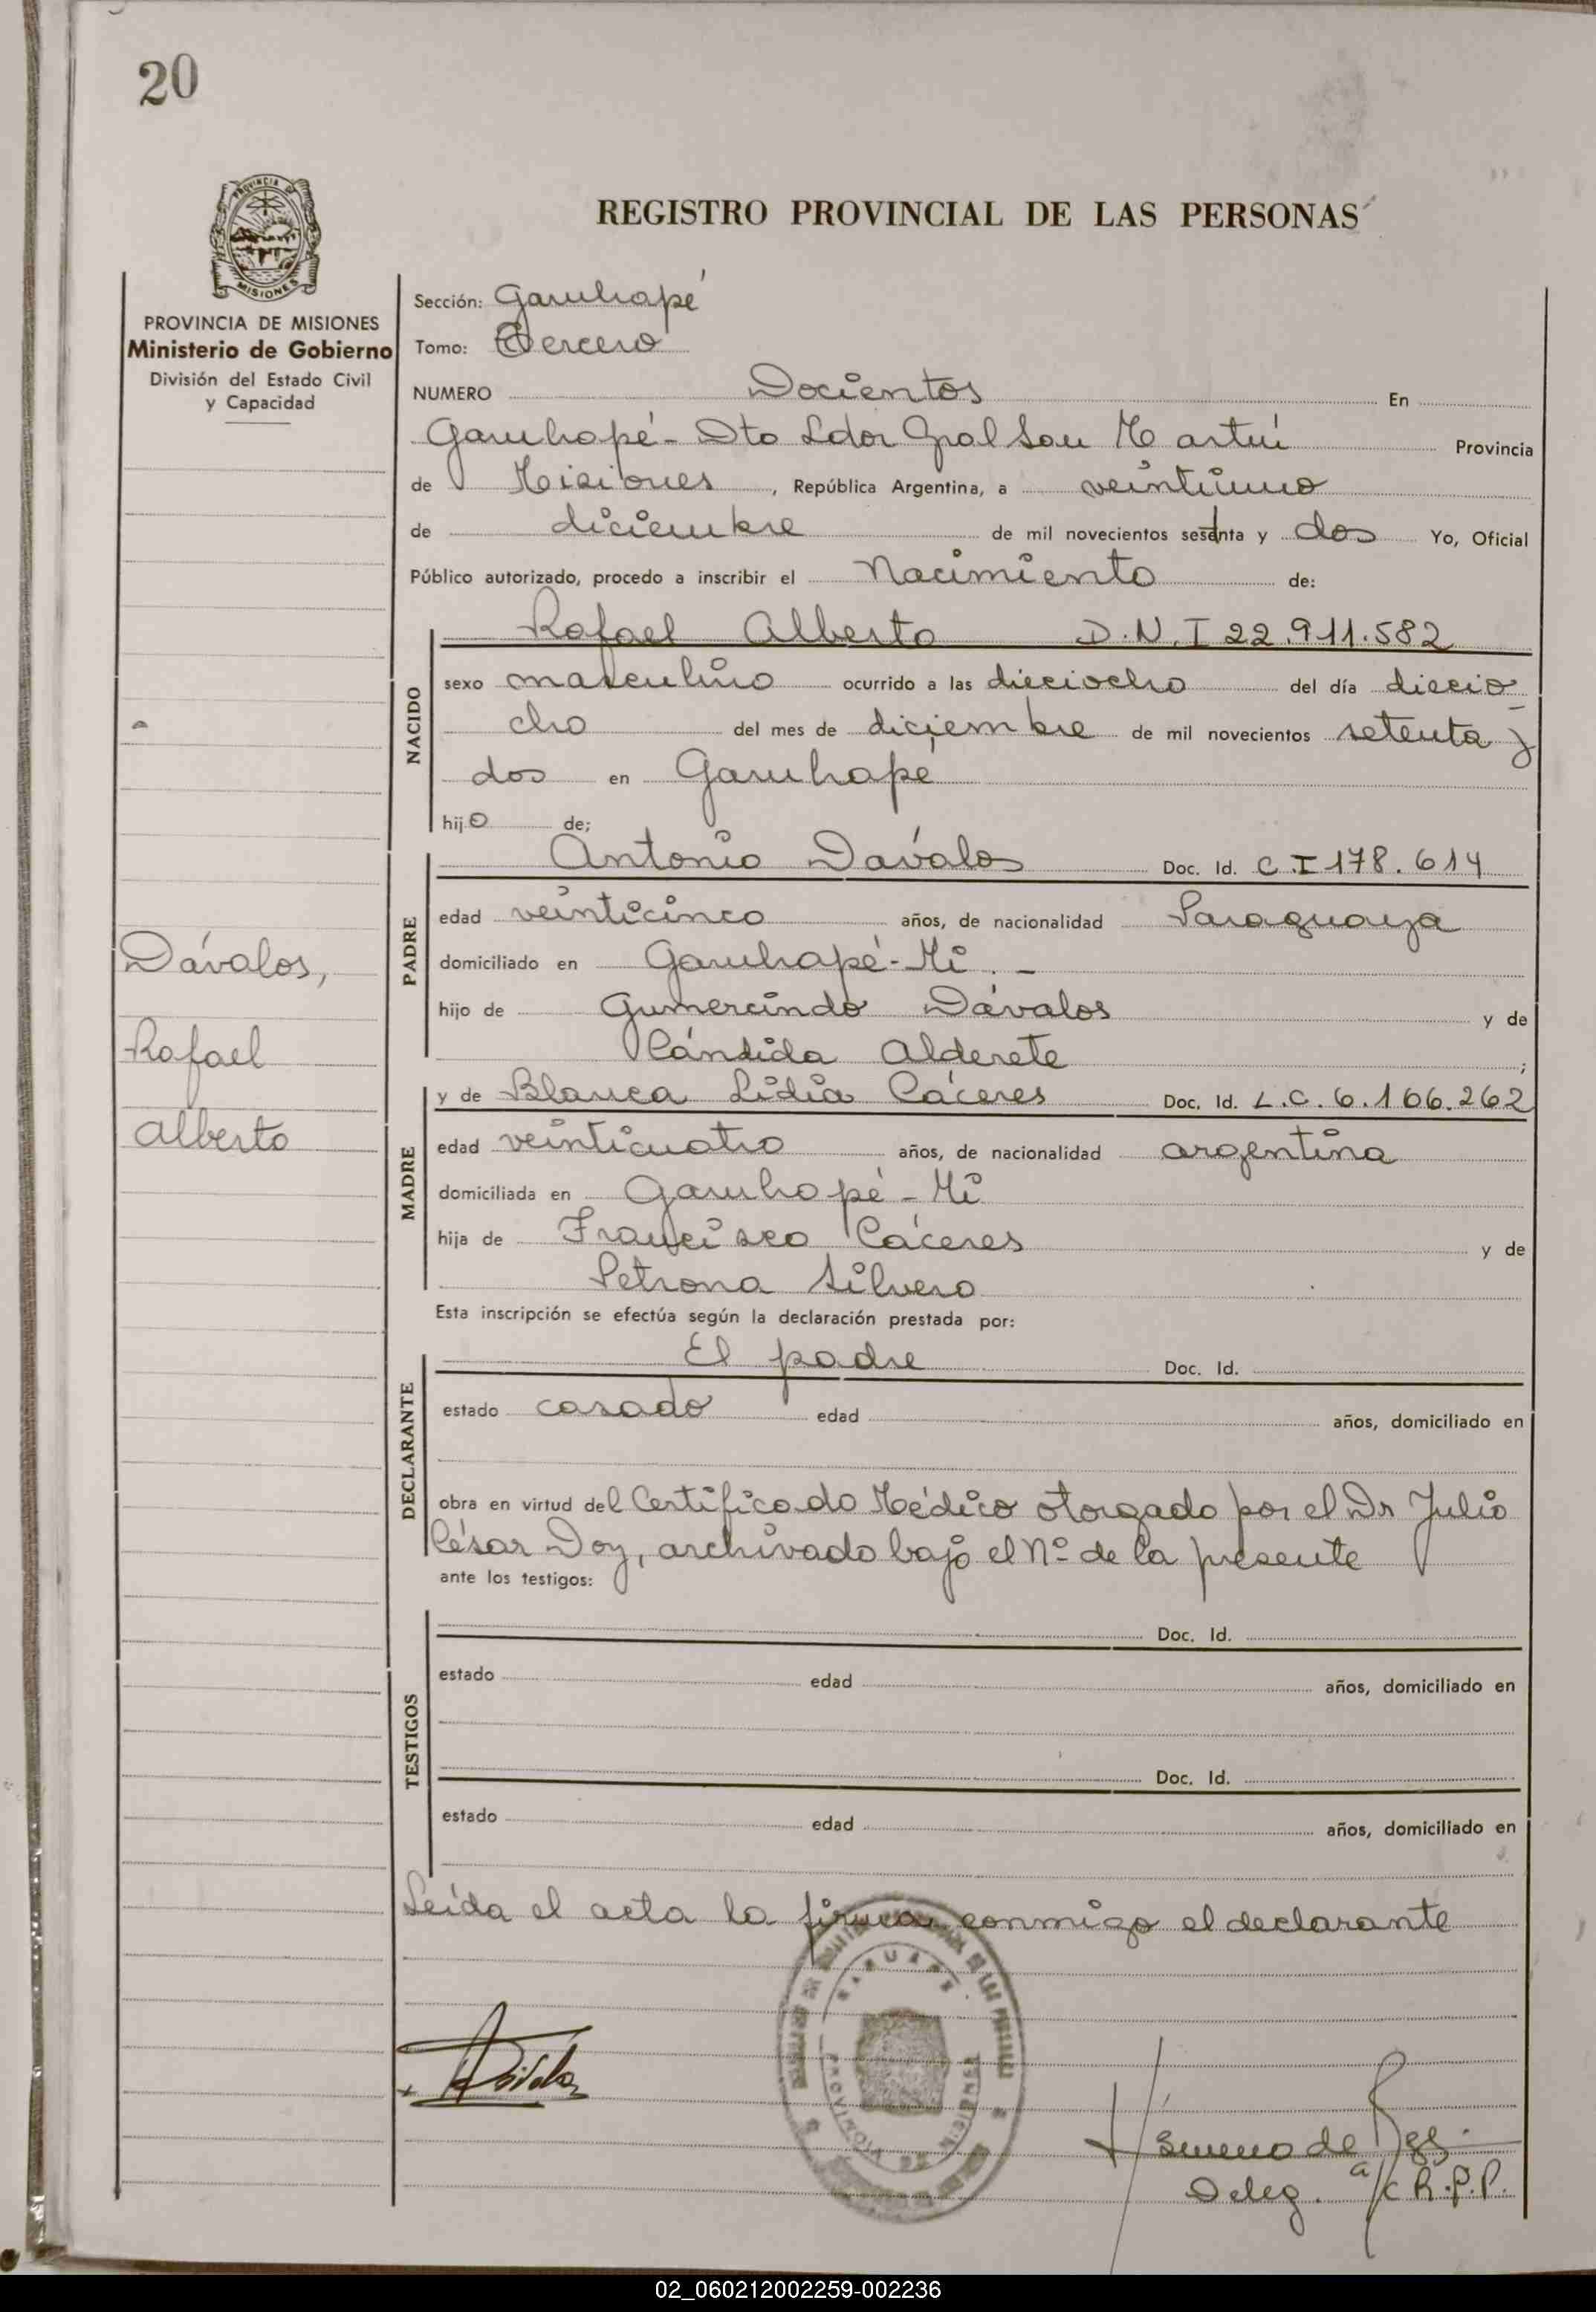 20
REGISTRO PROVINCIAL DE LAS PERSONAS
PROVINCIA DE
MISIONES
PROVINCIA DE MISIONES
Ministerio de Gobierno
División del Estado Civil
y Capacidad
Sección: Garuhapé
Tomo: Tercero
NUMERO Docientos En
Garuhapé - Dto Ldor Gral San Martín Provincia
de Misiones, República Argentina, a veintiuno
de diciembre de mil novecientos setenta y dos Yo, Oficial
Público autorizado, procedo a inscribir el Nacimiento de:
NACIDO
Rafael Alberto D.N.I 22.911.582
sexo masculino ocurrido a las dieciocho del día diecio
cho del mes de diciembre de mil novecientos setenta y
dos en Garuhapé
hijo de;
PADRE
Antonio Dávalos Doc. Id. C.I 178.614
edad veinticinco años, de nacionalidad Paraguaya
domiciliado en Garuhapé - Mi. -
hijo de Gumercindo Dávalos y de
Cándida Alderete ;
Dávalos,
Rafael
Alberto
MADRE
y de Blanca Lidia Cáceres Doc. Id. L.C. 6.166.262
edad veinticuatro años, de nacionalidad argentina
domiciliada en Garuhapé - Mi
hija de Francisco Cáceres y de
Petrona Silvero
Esta inscripción se efectúa según la declaración prestada por:
DECLARANTE
El padre Doc. Id.
estado casado edad años, domiciliado en
obra en virtud del Certificado Médico otorgado por el Dr Julio
César Doy, archivado bajo el Nº de la presente
ante los testigos:
TESTIGOS
Doc. Id.
estado edad años, domiciliado en
Doc. Id.
estado edad años, domiciliado en
Leída el acta la firma conmigo el declarante
DE LAS PERSONAS
PROVINCIA DE MISIONES
Deleg. a/c R.P.P.
02_060212002259-002236